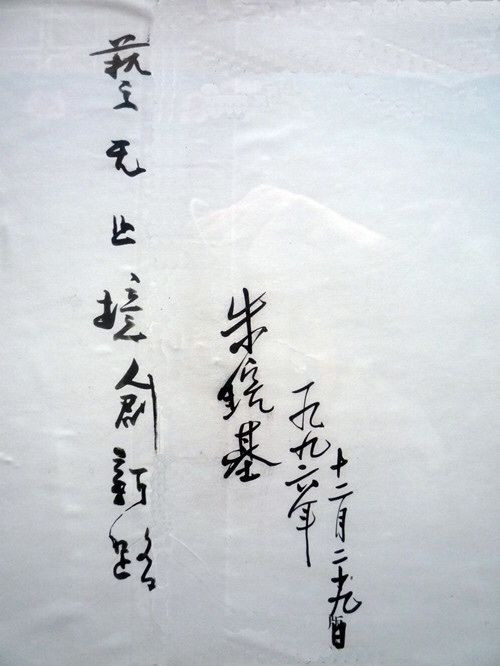 藝无止境創新路
朱鎔基
一九九六年
十二月二十九日